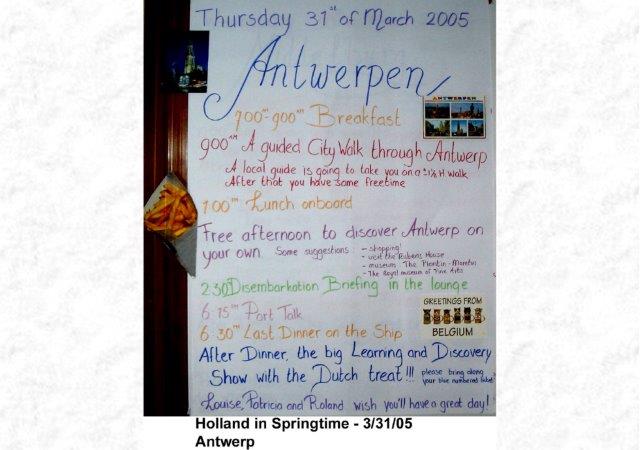 Thursday 31st of March 2005
Antwerpen
700am-900am Breakfast
ANTWERPEN
900AM A guided City Walk through Antwerp
A local guide is going to take you on a ±1½ H walk
After that you have some freetime
100pm Lunch onboard
Free afternoon to discover Antwerp on
your own. Some suggestions: - shopping!
- visit the Rubens House
- museum: The Plantin-Moretus
- The Royal museum of Fine Arts
230 Disembarkation Briefing in the lounge
6:15pm Port Talk
6:30pm Last Dinner on the Ship
GREETINGS FROM
BELGIUM
After Dinner, the big Learning and Discovery
Show with the Dutch treat!!! please bring along
your blue numbered
Louise, Patricia and Roland wish you'll have a great day!
Holland in Springtime - 3/31/05
Antwerp